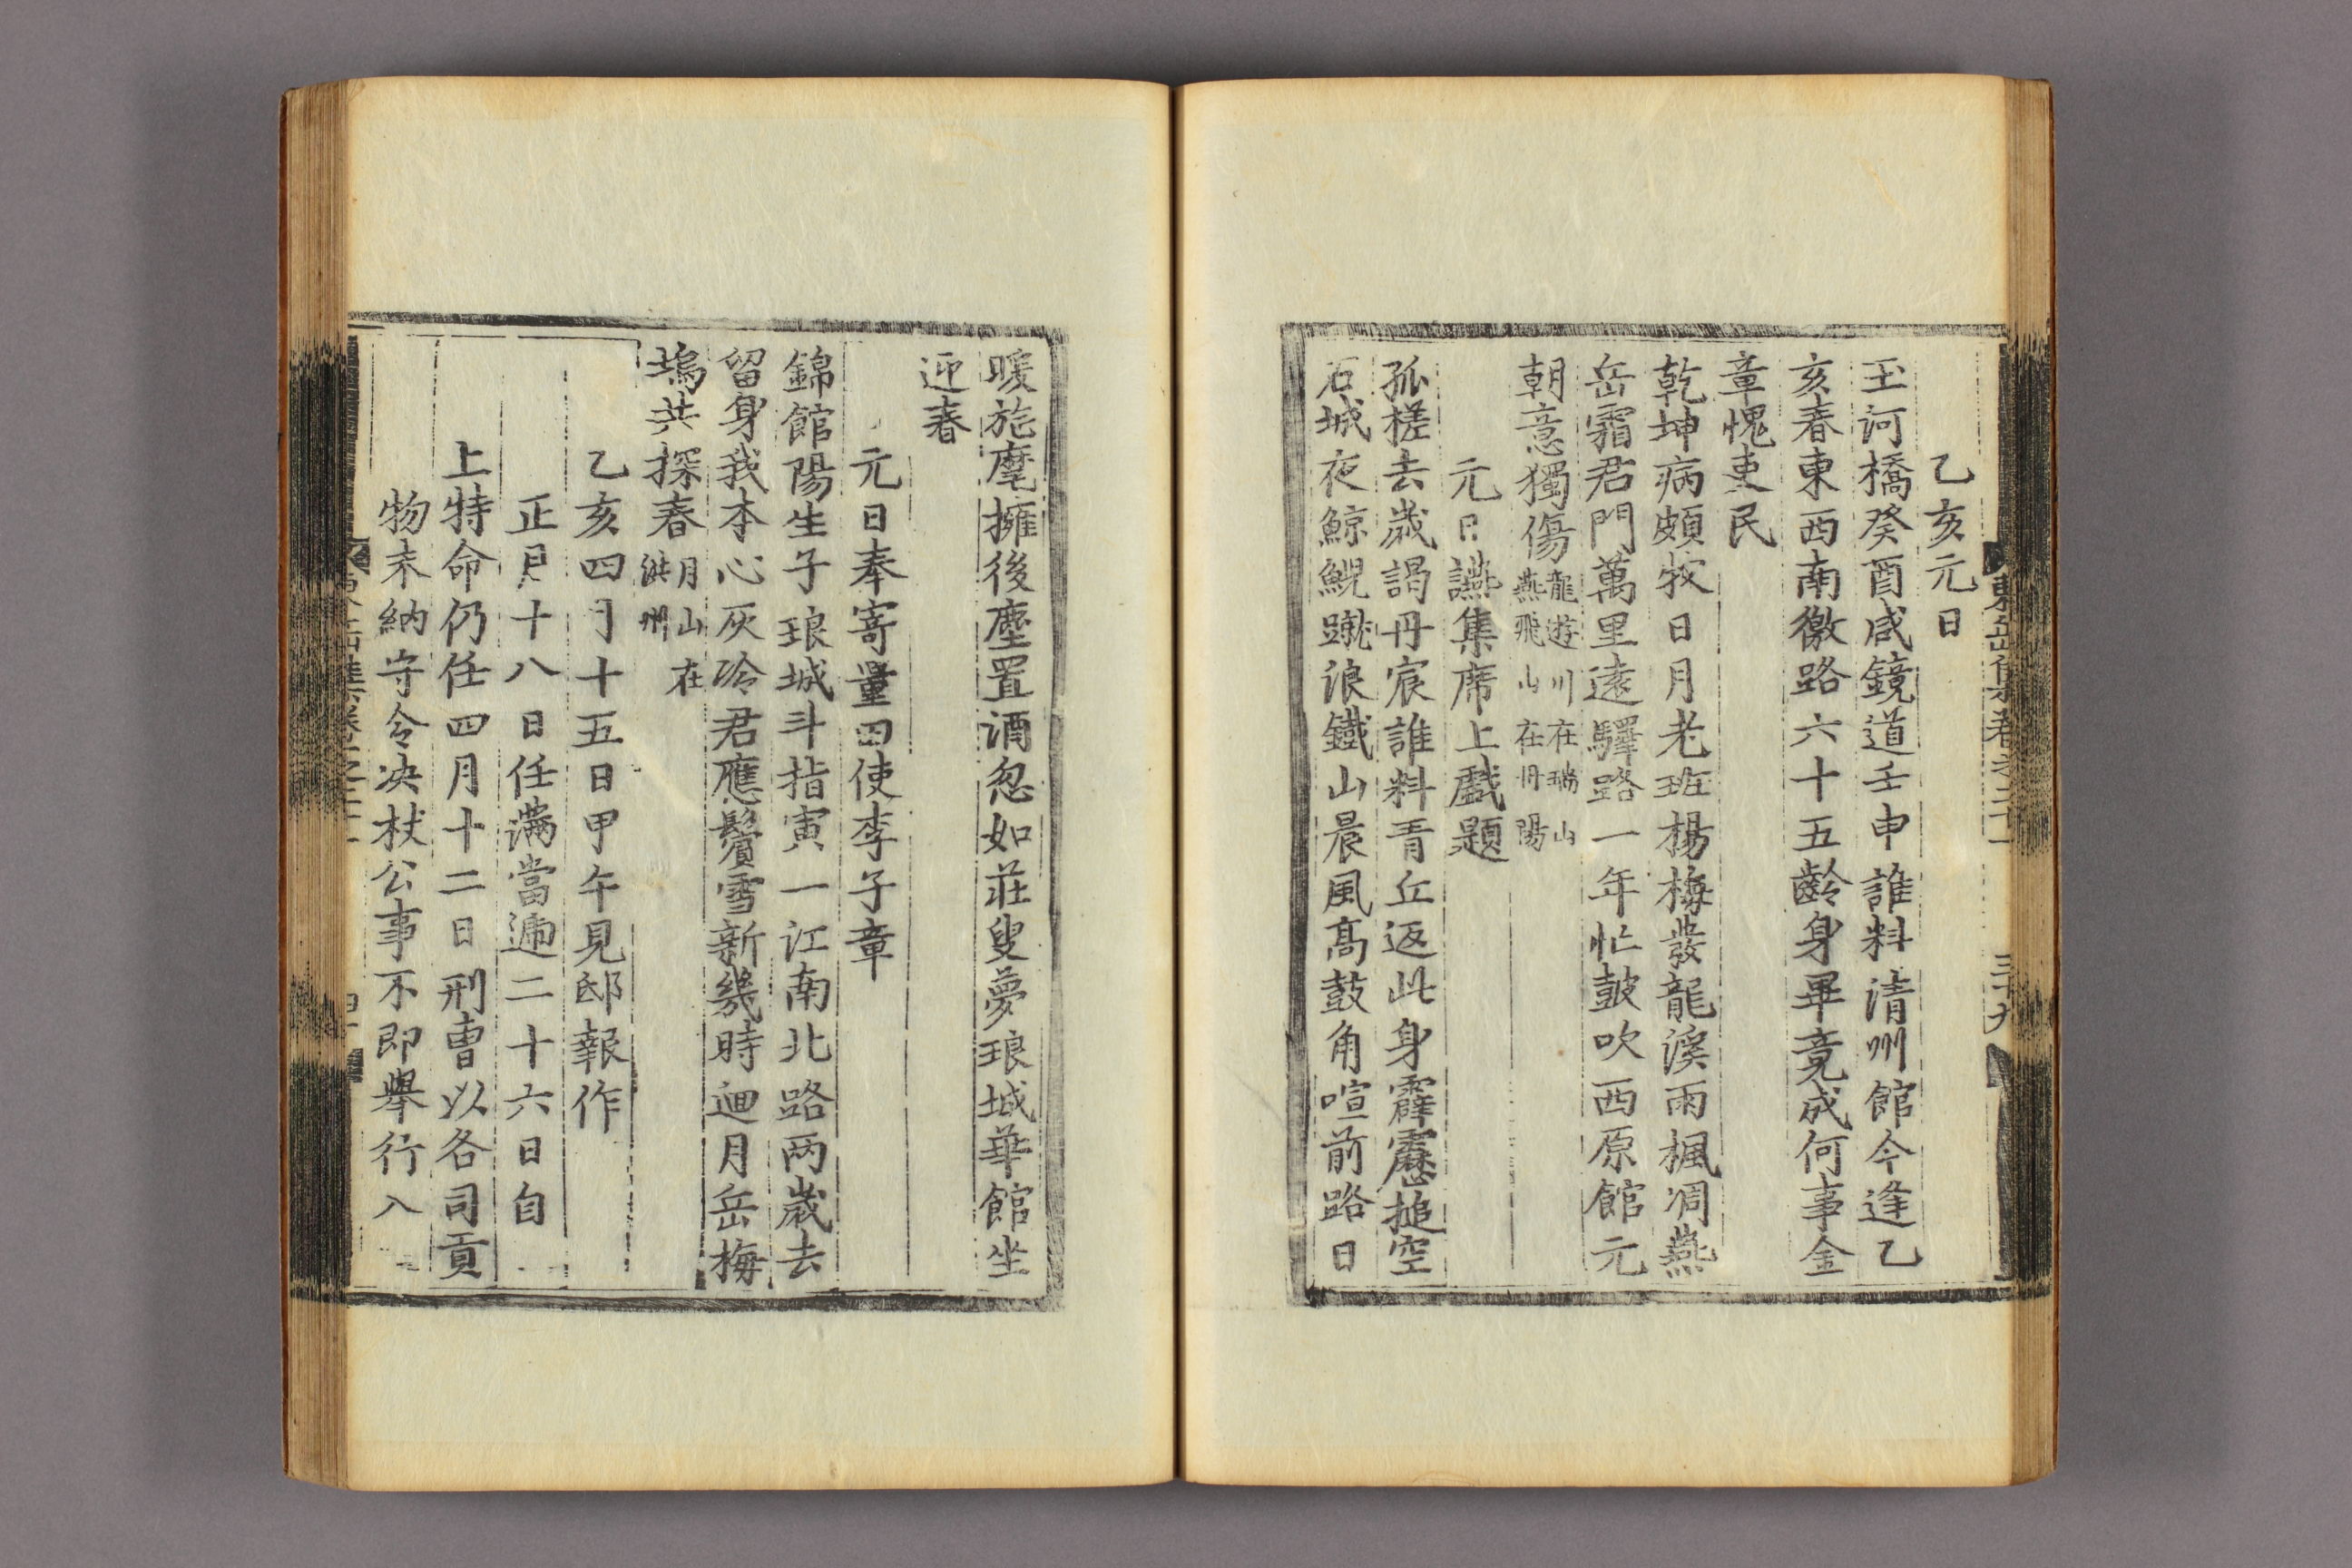 乙亥元日
玉河橋癸酉咸鏡道壬申誰料清州館今逢乙
亥春東西南徼路六十五齡身畢竟成何事金
章愧吏民
乾坤病頗牧日月老班楊梅發龍溪雨楓凋燕
岳霜君門萬里遠驛路一年忙鼓吹西原館元
朝意獨傷龍遊川在瑞山燕飛山在丹陽
元日讌集席上戲題
孤槎去歲謁丹宸誰料青丘返此身霹靂搥空
石城夜鯨鯢蹴浪鐵山晨風高鼓角喧前路日
暖旄麾擁後塵置酒忽如莊叟夢琅城華館坐
迎春
元日奉寄量田使李子章
錦館陽生子琅城斗指寅一江南北路兩歲去
留身我本心灰冷君應鬢雪新幾時迴月岳梅
塢共探春月山在洪州
乙亥四月十五日甲午見邸報作
正月十八日任滿當遞二十六日自
上特命仍任四月十二日刑曹以各司貢
物未納守令决杖公事不即舉行入
東岳集卷之二十一
三十九